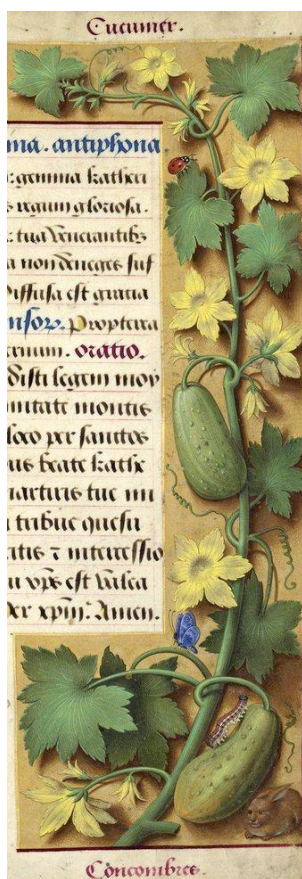 Cucumer.
na. antiphona
gemma katheri
regum gloriosa.
tua
a non deneges suf
diffusa est gratia
Propterea
ernum. oratio.
disti legem moy
mitate montis
loco per sanctos
beate kathe
martiris tue
tribue quesu
ritis ⁊ intercessio
xp̄s est valea
xp̄m. Amen.
Concombres.